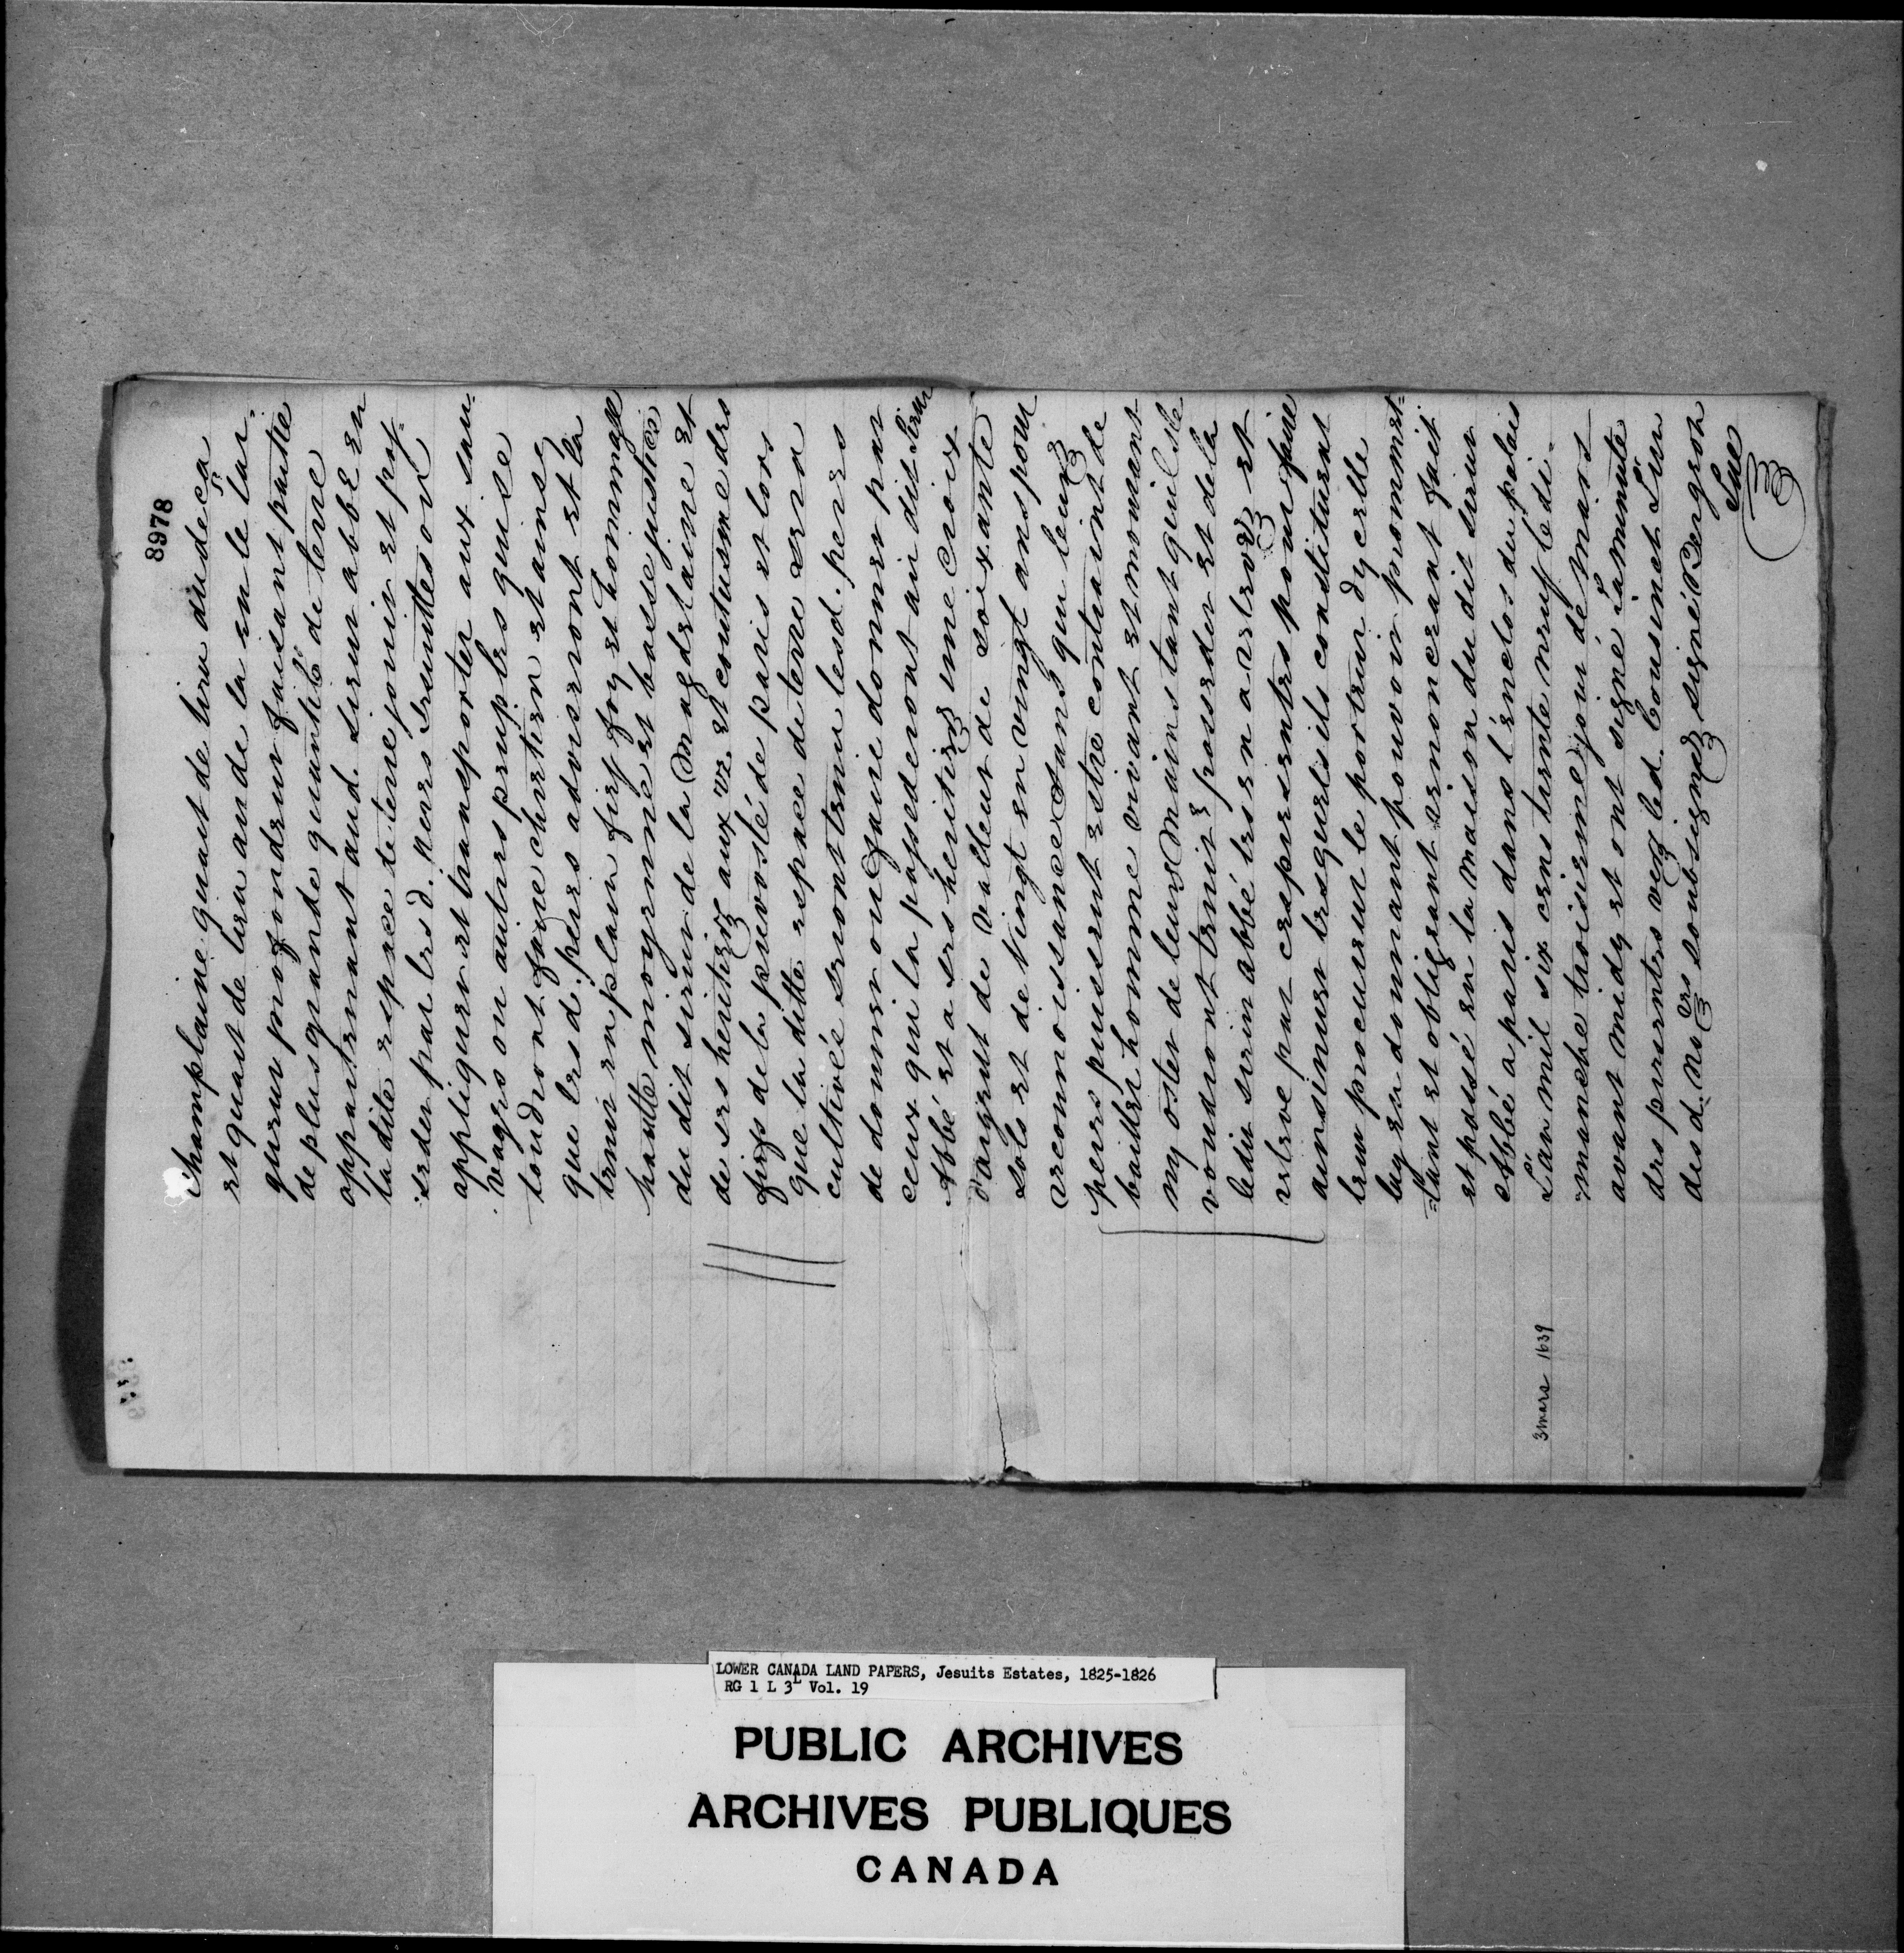 8978
Champlaine quart de lieu au deça
et quart de lieu au de la en le lar-
gueur profondeur faisant partie
de plus grande quantité de terre
appartenant aud. sieur abbé en
la dite espace te terre jouir et pos-
seder par lesd. peres Jesuittes on
appliquer et transporter aux sau-
vages ou autres peuples qui se
foudront faire chretien et ainse
que lesd. peres adviseront et la
tenir en plain fief foy et hommage
hautte moyenne et basse justice
du dit sieur de la Magdelaine et
de ses heritiers aux us et coutusme des
fiefs de la prevosté de paris et lors
que la ditte espace de terre sera
cultivée seront tenu lesd. peres
de donner ou faire donner par
ceux qui la possederont au dit Sieur
Abbé et a ses heritiers une croix
d'argent de valleur de soixante
sols et de Vingt en vingt ans pour
reconnoissance Sans qu leurs
peres puissent estre contraint de
baitler homme vivant et mourant
ny oster de leurs Mains tant quils la
voudront tenir & posseder et de la
ledit sieur abbé les en a relevés et
releve par ces presentes pour faire
ainsinuer lesquels ils constituent
leur procureur le porteur dycelle
luy en donnant pouvoir prommet-
=tant et obligeant renoncerant fait
et passé en la maison du dit sieur
Abbé a paris dans l'enclos du palais
L'an mil six cens trente neuf le di-
manche troisieme jour de Mars
avant midy et ont signé la minutte
des presentes vers led. Cousinet Lun
des d. Nores soubsignés signé Bergeon
3 mars 1639
LOWER CANADA LAND PAPERS, Jesuits Estates, 1825-1826
RG 1 L 3L Vol. 19
PUBLIC ARCHIVES
ARCHIVES PUBLIQUES
CANADA